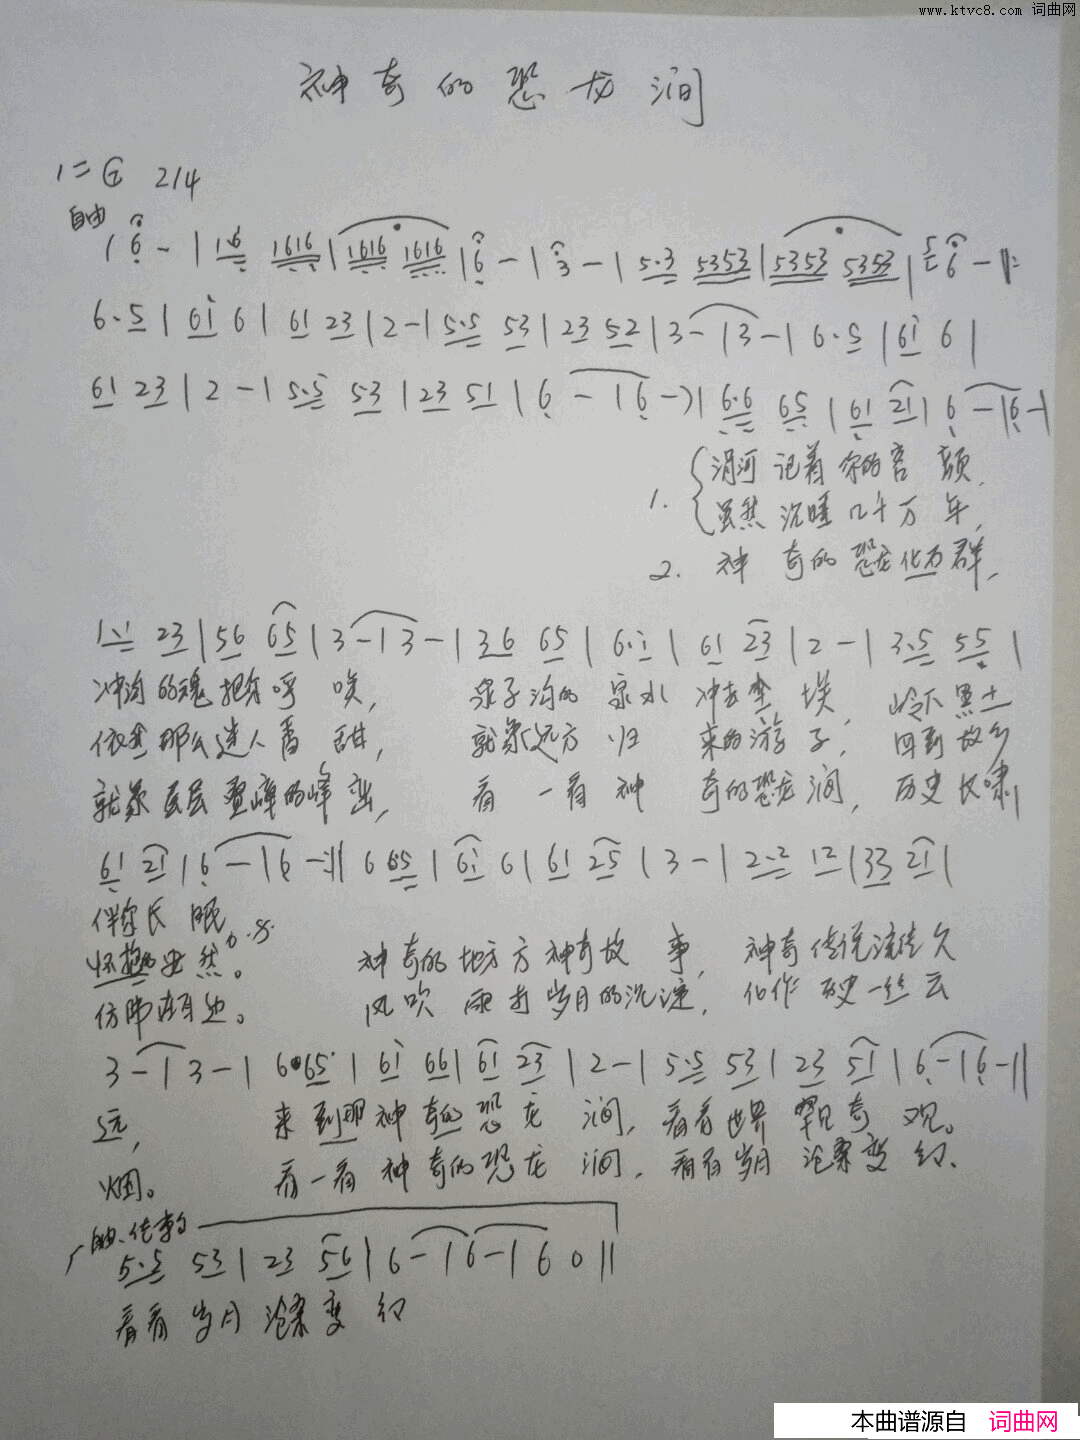 www.ktvc8.com 词曲网
神奇的恐龙涧
1=G 2/4
自由
1 6 - | 1·6 1616 | 1616 1616 | 6 - | 3 - | 5·3 5353 | 5353 5353 | 6 - ‖:
6·5 | 61 6 | 61 23 | 2 - | 5·5 53 | 23 52 | 3 - | 3 - | 6·5 | 61 6 |
61 23 | 2 - | 5·5 53 | 23 51 | 6 - | 6 - ) | 6·6 65 | 61 21 | 6 - | 6 - |
1. 渭河记着你的容颜,
虽然沉睡几千万年,
2. 神奇的恐龙化石群,
1·1 23 | 56 65 | 3 - | 3 - | 36 65 | 6·1 | 61 23 | 2 - | 3·5 55 |
冲沟的魂把你呼唤, 泉子沟的泉水冲去尘埃, 岭下黑土
依然那么迷人香甜, 就象远方归来的游子, 回到故乡
就象层层叠嶂的峰峦, 看一看神奇的恐龙涧, 历史长啸
61 21 | 6 - | 6 - :‖ 6 65 | 61 6 | 61 25 | 3 - | 2·2 12 | 33 21 |
伴你长眠。
怀抱安然。 D.S. 神奇的地方神奇故事, 神奇传说流传久
仿佛在耳边。 风吹雨打岁月的沉淀, 化作历史一丝云
3 - | 3 - | 6·65 | 61 66 | 61 23 | 2 - | 5·5 53 | 23 51 | 6 - | 6 - ‖
远, 来到那神奇的恐龙涧, 看看世界罕见奇观。
烟。 看一看神奇的恐龙涧, 看看岁月沧桑变幻、
5·5 53 | 23 56 | 6 - | 6 - | 6 0 ‖
看看岁月沧桑变幻
本曲谱源自 词曲网